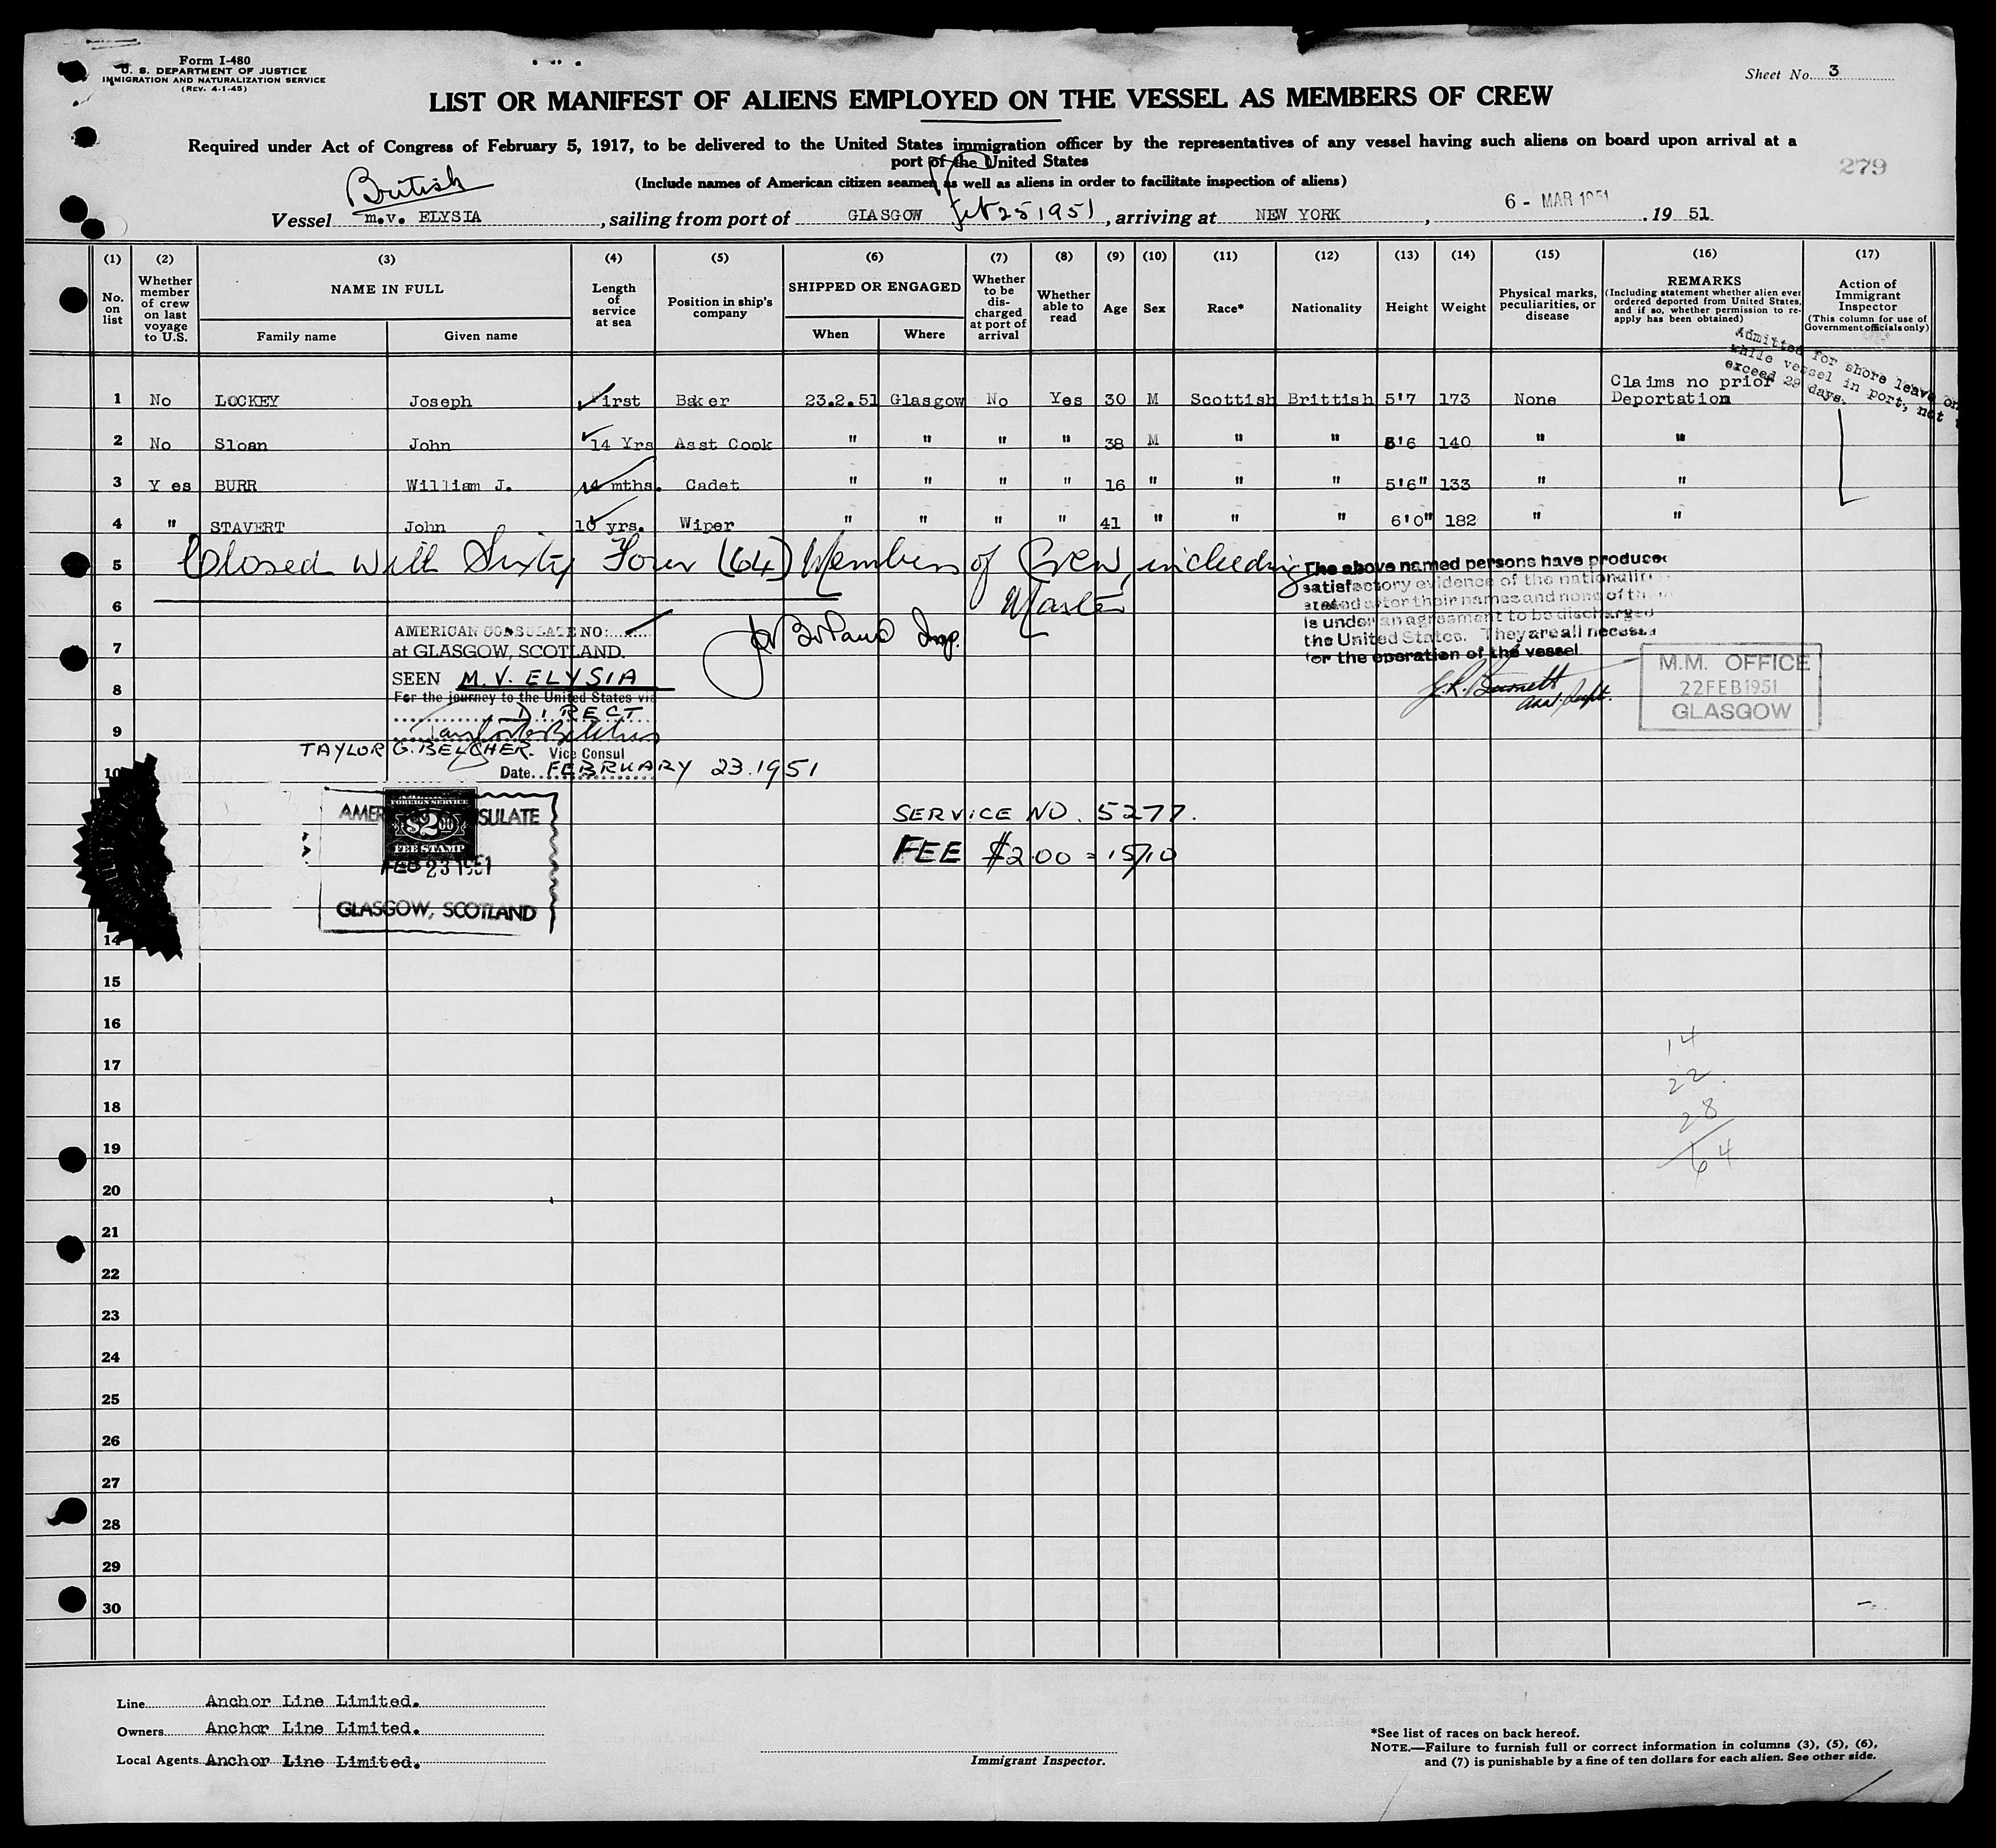 Form I-480
U. S. DEPARTMENT OF JUSTICE
IMMIGRATION AND NATURALIZATION SERVICE
(REV. 4-1-45)
Sheet No. 3
LIST OR MANIFEST OF ALIENS EMPLOYED ON THE VESSEL AS MEMBERS OF CREW
Required under Act of Congress of February 5, 1917, to be delivered to the United States immigration officer by the representatives of any vessel having such aliens on board upon arrival at a
port of the United States
279
(Include names of American citizen seamen as well as aliens in order to facilitate inspection of aliens)
British
Vessel m.v. ELYSIA, sailing from port of GLASGOW Feb 25 1951, arriving at NEW YORK, 6 - MAR 1951. 19 51
(1) (2) (3) (4) (5) (6) (7) (8) (9) (10) (11) (12) (13) (14) (15) (16) (17)
No. on list
Whether member of crew on last voyage to U.S.
NAME IN FULL
Family name
Given name
Length of service at sea
Position in ship's company
SHIPPED OR ENGAGED
When
Where
Whether to be discharged at port of arrival
Whether able to read
Age
Sex
Race*
Nationality
Height
Weight
Physical marks, peculiarities, or disease
REMARKS
(Including statement whether alien ever ordered deported from United States, and if so, whether permission to reapply has been obtained)
Action of Immigrant Inspector
(This column for use of Government officials only)
Admitted for shore leave
while vessel in port, not
exceed 29 days.
1 No LOCKEY Joseph First Baker 23.2.51 Glasgow No Yes 30 M Scottish Brittish 5'7 173 None Claims no prior Deportation
2 No Sloan John 14 Yrs Asst Cook " " " " 38 M " " 5'6 140 " "
3 Y es BURR William J. 14 mths. Cadet " " " " 16 " " " 5'6" 133 " "
4 " STAVERT John 10 yrs. Wiper " " " " 41 " " " 6'0" 182 " "
5 Closed with Sixty Four (64) Members of Crew, including
6 Master
The above named persons have produce
satisfactory evidence of the nationality
stated after their names and none of th
is under an agreement to be discharged
the United States. They are all necessa
for the operation of the vessel.
7
8
9
AMERICAN CONSULATE NO:
at GLASGOW, SCOTLAND.
SEEN M.V. ELYSIA
For the journey to the United States via
DIRECT
TAYLOR G. BELCHER. Vice Consul
Date. FEBRUARY 23.1951
M.M. OFFICE
22 FEB 1951
GLASGOW
10
FOREIGN SERVICE
$2.00
FEE STAMP
AMER SULATE
FEB 23 1951
GLASGOW, SCOTLAND
SERVICE NO. 5277.
FEE $2.00 = 15/10
14
15
16
17
18
19
20
21
22
23
24
25
26
27
28
29
30
14
22
28
64
Line Anchor Line Limited.
Owners Anchor Line Limited.
Local Agents Anchor Line Limited.
Immigrant Inspector.
*See list of races on back hereof.
NOTE.—Failure to furnish full or correct information in columns (3), (5), (6),
and (7) is punishable by a fine of ten dollars for each alien. See other side.